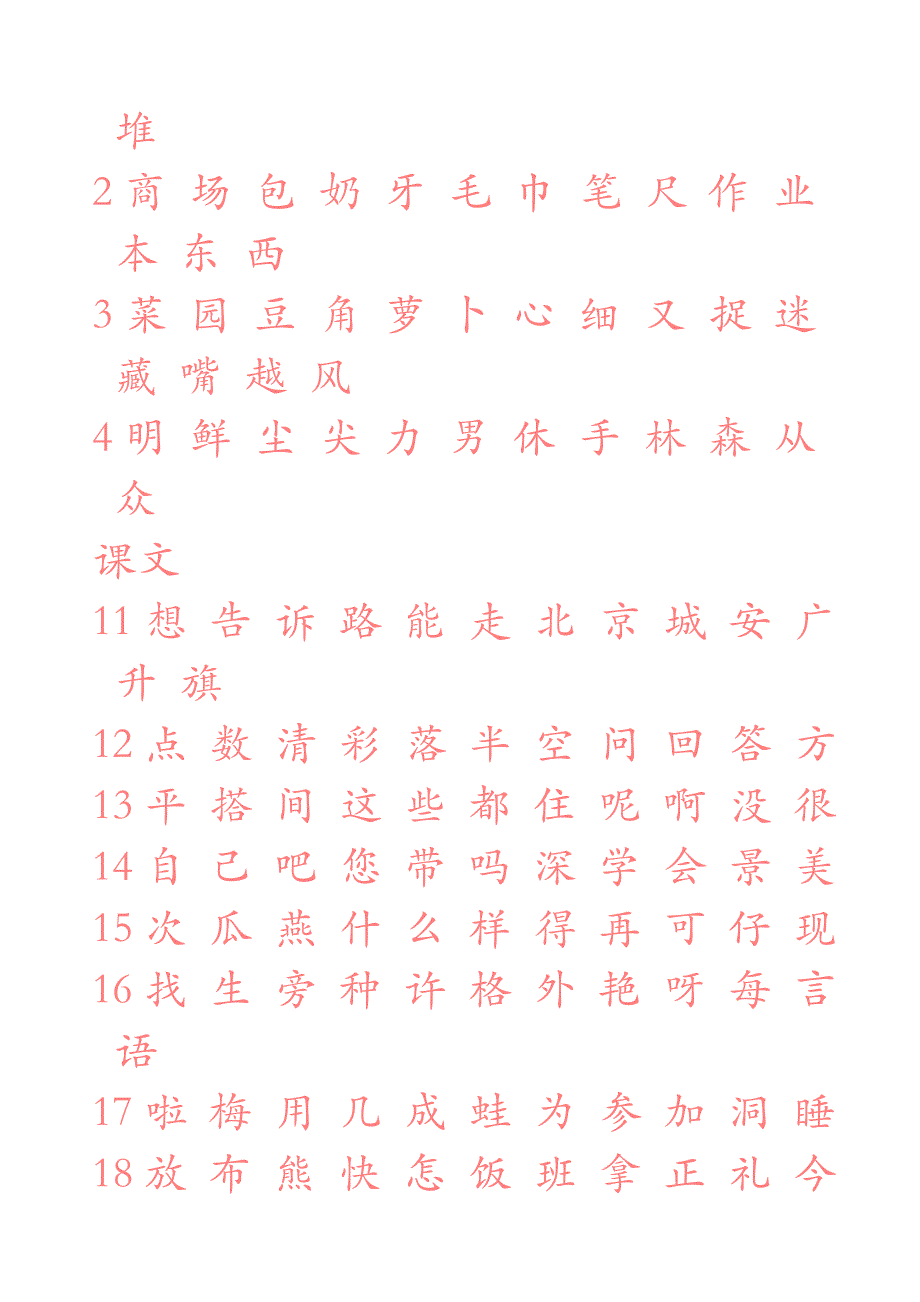 堆
2 商 场 包 奶 牙 毛 巾 笔 尺 作 业
本 东 西
3 菜 园 豆 角 萝 卜 心 细 又 捉 迷
藏 嘴 越 风
4 明 鲜 尘 尖 力 男 休 手 林 森 从
众
课文
11 想 告 诉 路 能 走 北 京 城 安 广
升 旗
12 点 数 清 彩 落 半 空 问 回 答 方
13 平 搭 间 这 些 都 住 呢 啊 没 很
14 自 己 吧 您 带 吗 深 学 会 景 美
15 次 瓜 燕 什 么 样 得 再 可 仔 现
16 找 生 旁 种 许 格 外 艳 呀 每 言
语
17 啦 梅 用 几 成 蛙 为 参 加 洞 睡
18 放 布 熊 快 怎 饭 班 拿 正 礼 今